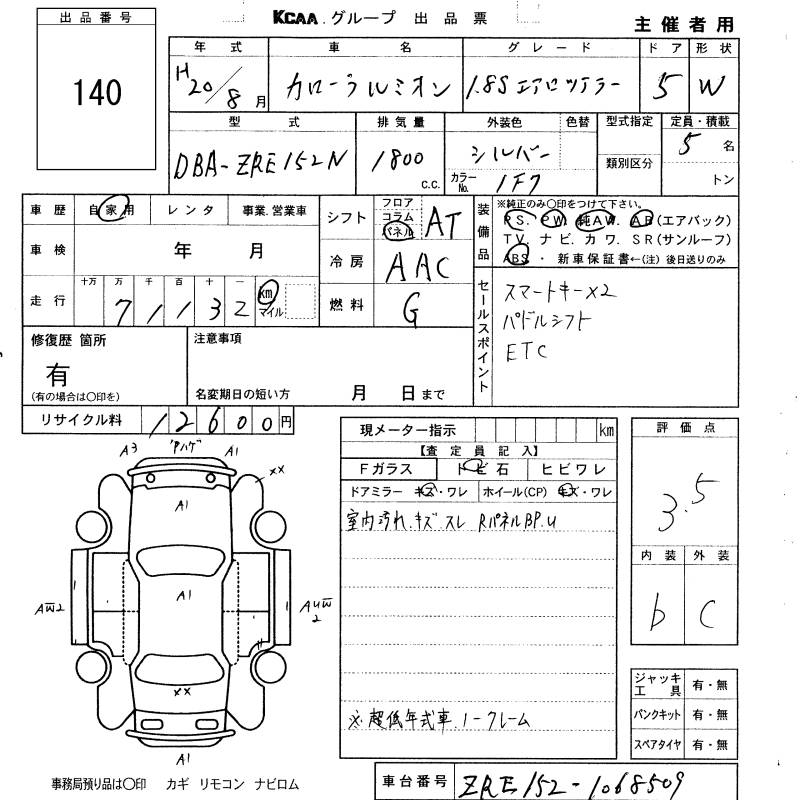 出品番号
140
KCAA.グループ 出品票
主催者用
年式 車名 グレード ドア 形状
H20/8月 カローラルミオン 1.8S エアロツアラー 5 W
型式 排気量 外装色 色替 型式指定 定員・積載
類別区分
DBA-ZRE152N 1800 c.c. シルバー 5名
カラーNo. 1F7 トン
車歴 自家用 レンタ 事業.営業車
車検 年 月
走行 十万 万 千 百 十 一 km マイル
71132
シフト フロア コラム パネル AT
冷房 AAC
燃料 G
装備品
※純正のみ〇印をつけて下さい。
PS. PW. 純AW. AB(エアバック)
TV. ナビ. カワ. SR(サンルーフ)
ABS ・ 新車保証書←(注) 後日送りのみ
セールスポイント
スマートキーx2
パドルシフト
ETC
修復歴 箇所
有
(有の場合は〇印を)
注意事項
名変期日の短い方 月 日まで
リサイクル料 12600円
現メーター指示 km
【査定員記入】
Fガラス トビ石 ヒビワレ
ドアミラー キズ・ワレ ホイール(CP) キズ・ワレ
室内汚れ.キズ スレ RパネルBP.U
※超低年式車.ノークレーム
評価点
3.5
内装 外装
b C
ジャッキ工具 有・無
パンクキット 有・無
スペアタイヤ 有・無
A3 "Pハゲ" A1
xx
A1
A1
AW2 AUW2
xx
A1
事務局預り品は〇印 カギ リモコン ナビロム
車台番号 ZRE152-1068509